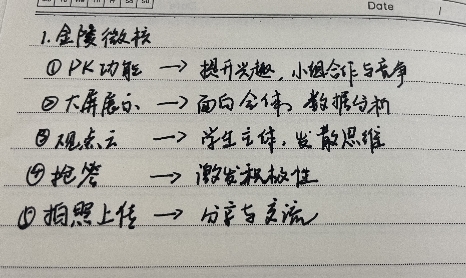 Date
1. 金陵微校
① PK功能 → 提升兴趣，小组合作与竞争
② 大屏展示 → 面向全体，数据分析
③ 观点云 → 学生主体，发散思维
④ 抢答 → 激发积极性
⑤ 拍照上传 → 分享与交流